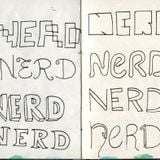 NERD
NERD
NERD
NERD
NERD
NeRD
NERD
neRD